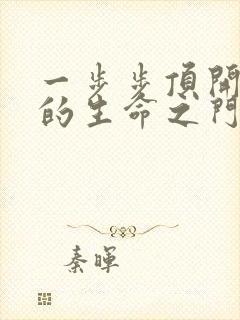 一步步頂開
的生命之門
秦暉